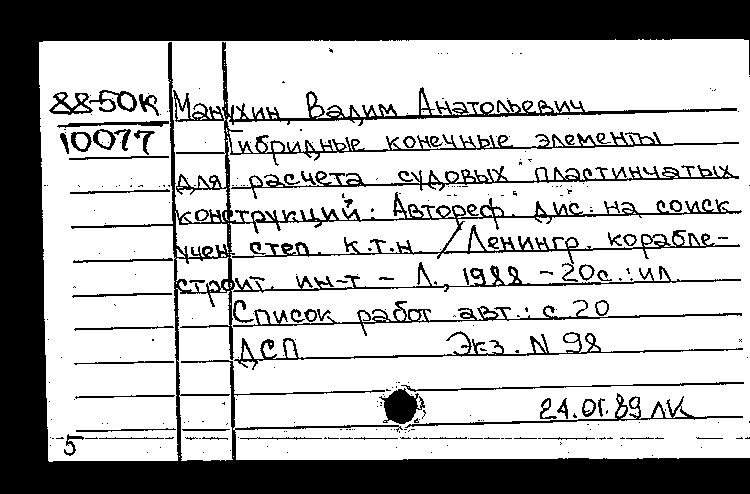 88-50к Манухин, Вадим Анатольевич
10077 Гибридные конечные элементы
для расчета судовых пластинчатых
конструкций: Автореф. дис. на соиск
учен. степ. к.т.н. / Ленингр. корабле-
строит. ин-т - Л., 1988 - 20с.: ил
Список работ авт.: с 20
ДСП Экз. N 98
24.01.89 ЛК
5